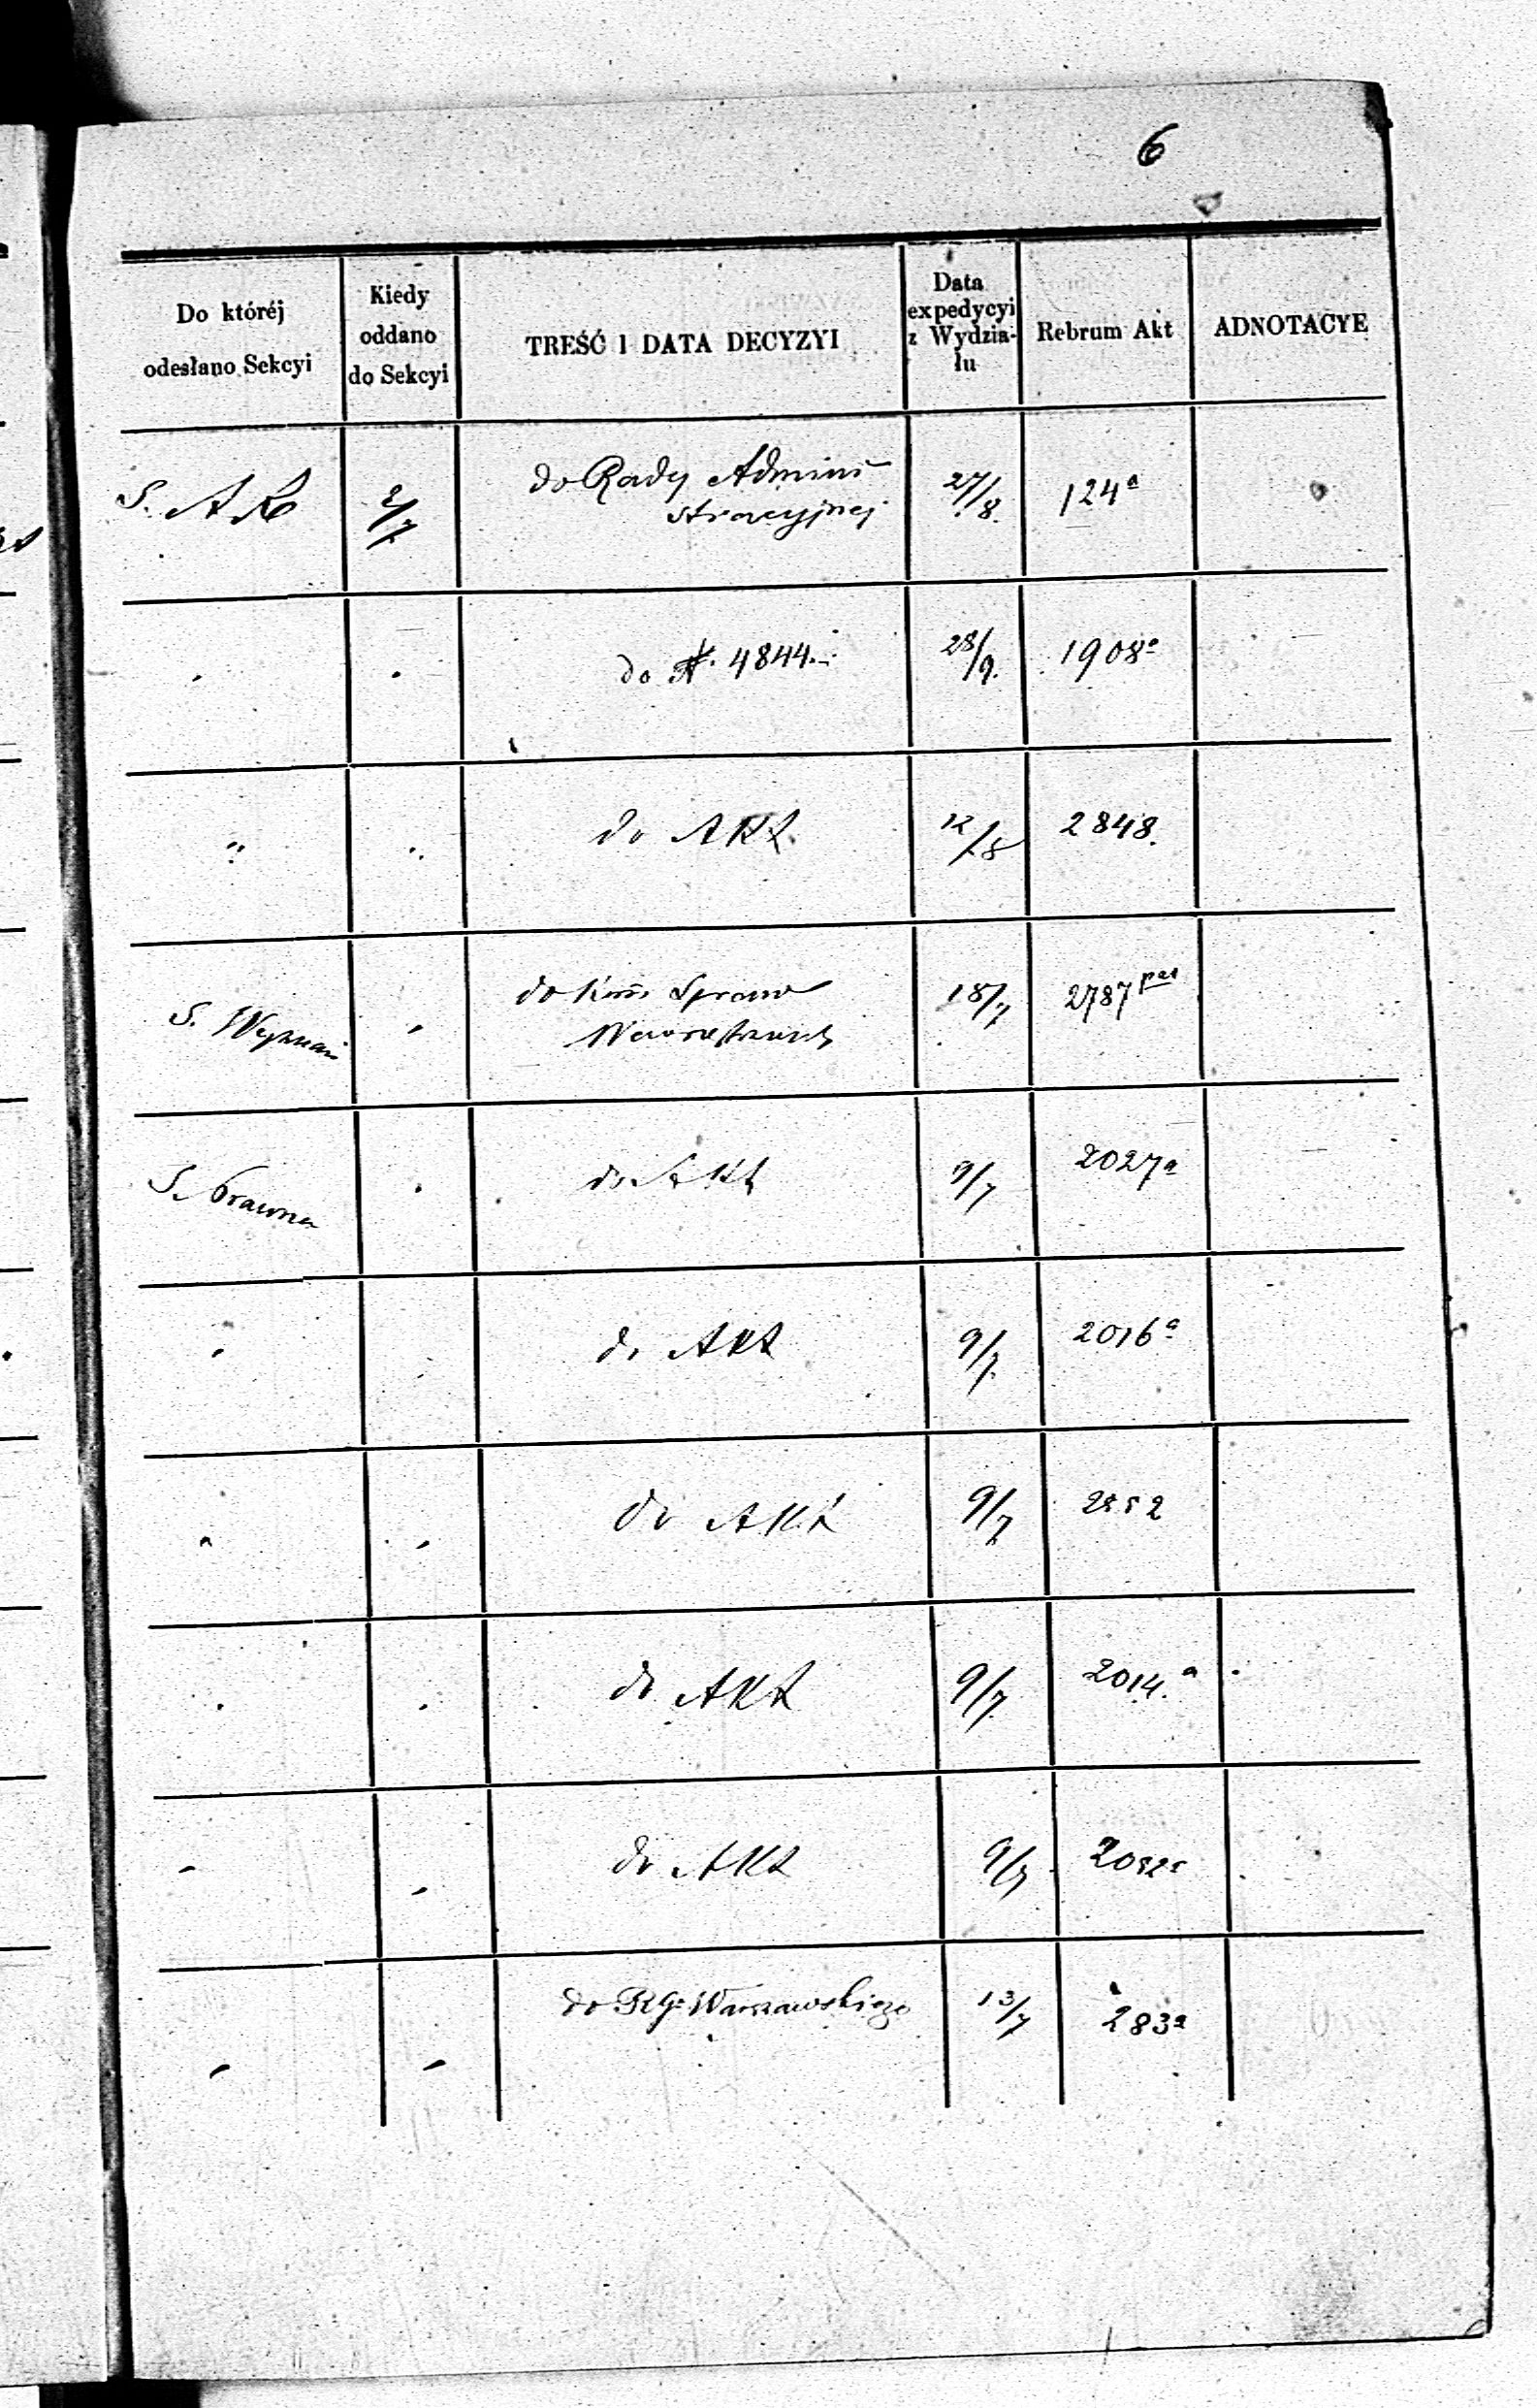 6
Do któréj
odesłano Sekcyi
Kiedy
oddano
do Sekcyi
TREŚĆ I DATA DECYZYI
Data
expedycyi
z Wydzia-
łu
Rebrum Akt
ADNOTACYE
S. 2/7 do Rady Admini 27/8. 124a
stracyjnej
do 4844. 28/9. 1908a
" " do Akt. 12/8 2848.
S. Wyznań " do Kom Spraw 18/7 2787
Wewnętrznych
S. Prawna " do Akt 9/7 2027a
" do Akt 9/7 2016a
" " do Akt 9/7 2852
" " do Akt 9/7 2014.a
" " do Akt 9/7
" " do RGo Warszawskiego 13/7 283a